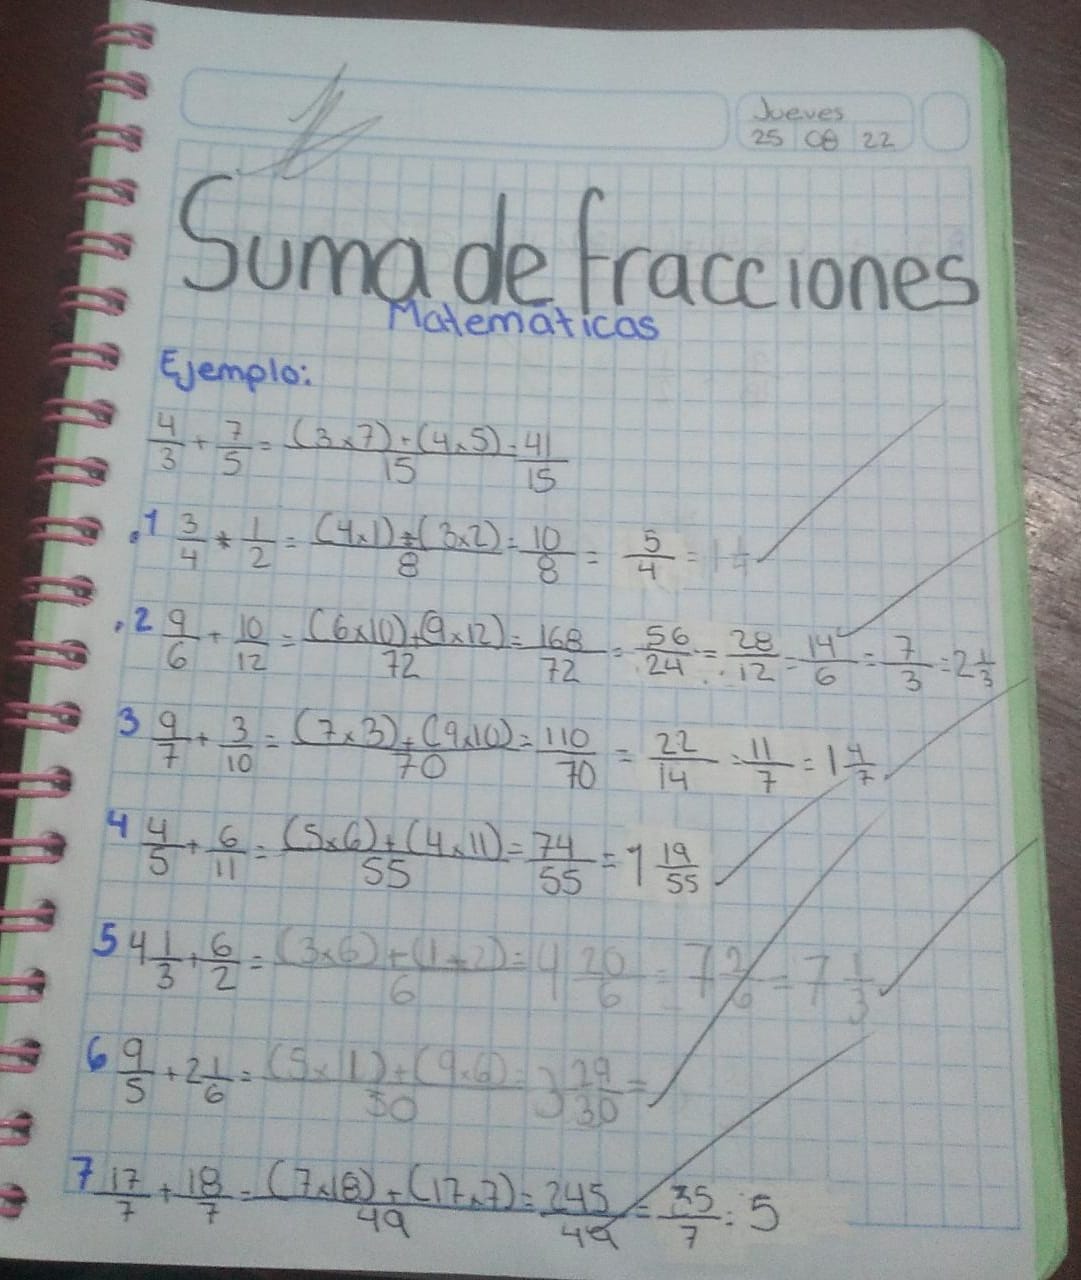 Jueves
25 08 22
Suma de fracciones
Matemáticas
Ejemplo:
4/3 + 7/5 = (3x7)+(4x5)/15 = 41/15
.1 3/4 + 1/2 = (4x1)+(3x2)/8 = 10/8 = 5/4 = 1 1/4
.2 9/6 + 10/12 = (6x10)+(9x12)/72 = 168/72 = 56/24 = 28/12 = 14/6 = 7/3 = 2 1/3
3 9/7 + 3/10 = (7x3)+(9x10)/70 = 110/70 = 22/14 = 11/7 = 1 4/7
4 4/5 + 6/11 = (5x6)+(4x11)/55 = 74/55 = 1 19/55
5 4 1/3 + 6/2 = (3x6)+(1+2)/6 = 4 20/6 = 7 2/6 = 7 1/3
6 9/5 + 2 1/6 = (5x1)+(9x6)/30 = 3 29/30 =
7 17/7 + 18/7 = (7x18)+(17x7)/49 = 245/49 = 35/7 = 5